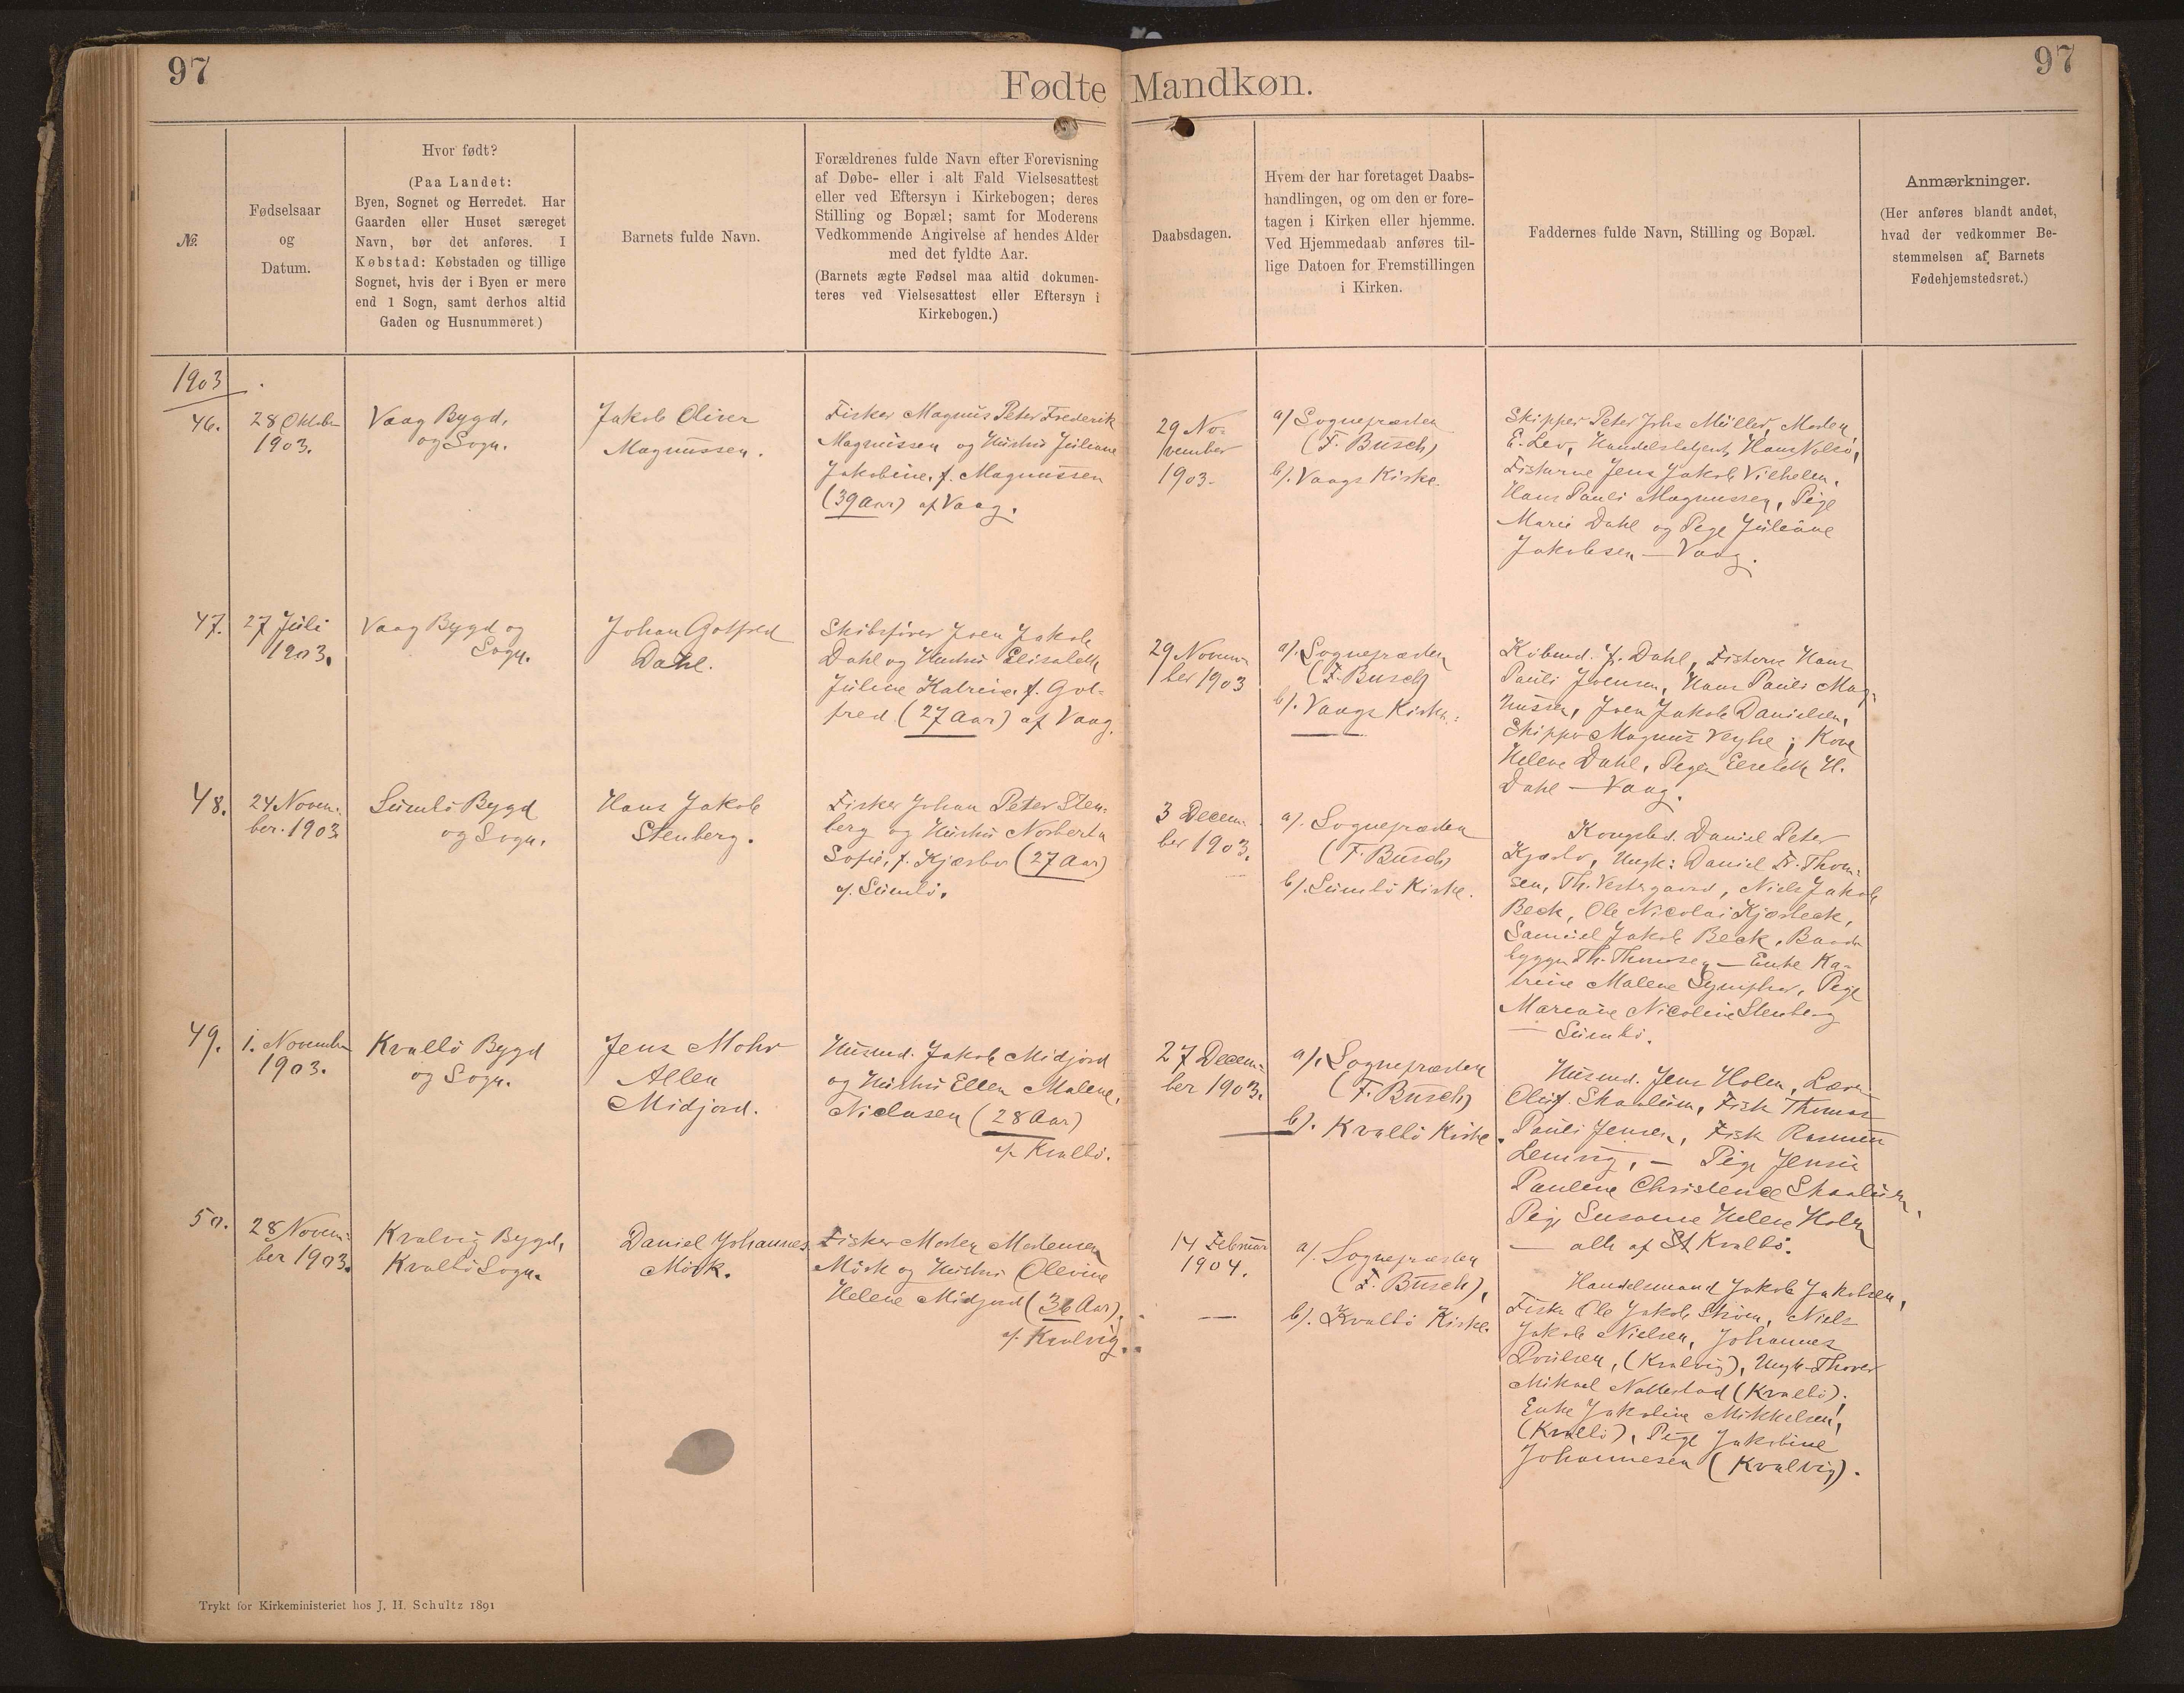 97
97
Fødte Mandkøn.
№.
Fødselsaar
og
Datum.
Hvor født?
(Paa Landet:
Byen, Sognet og Herredet. Har
Gaarden eller Huset særeget
Navn, bør det anføres. I
Købstad: Købstaden og tillige
Sognet, hvis der i Byen er mere
end 1 Sogn, samt derhos altid
Gaden og Husnummeret.)
Barnets fulde Navn.
Forældrenes fulde Navn efter Forevisning
af Døbe- eller i alt Fald Vielsesattest
eller ved Eftersyn i Kirkebogen; deres
Stilling og Bopæl; samt for Moderens
Vedkommende Angivelse af hendes Alder
med det fyldte Aar.
(Barnets ægte Fødsel maa altid dokumen-
teres ved Vielsesattest eller Eftersyn i
Kirkebogen.)
Daabsdagen.
Hvem der har foretaget Daabs-
handlingen, og om den er fore-
tagen i Kirken eller hjemme.
Ved Hjemmedaab anføres til-
lige Datoen for Fremstillingen
i Kirken.
Faddernes fulde Navn, Stilling og Bopæl.
Anmærkninger.
(Her anføres blandt andet,
hvad der vedkommer Be-
stemmelsen af Barnets
Fødehjemstedsret.)
1903
46.
28 Oktober
1903.
Vaag Bygd,
og Sogn.
Jakob Oliver
Magnussen.
Fisker Magnus Peter Frederik
Magnussen og Hustru Juliane
Jakobine, f. Magnussen
(39 Aar) af Vaag.
29 No-
vember
1903.
a) Sognepræsten
(F. Busch)
b). Vaags Kirke.
Skipper Peter Johs Müller, Morten
E. Lev, Hans Nolsø,
Fiskerne Jens Jakob Vilhelm,
Hans Pauli Magnussen, Pige
Marie Dahl og Pige Juliane
Jakobsen — Vaag.
47.
27 Juli
1903.
Vaag Bygd og
Sogn.
Johan Gotfred
Dahl.
Skibsfører Joen Jakob
Dahl og Hustru Elisabeth
Juline Katrine, f. Got-
fred (27 Aar) af Vaag.
29 Novem-
ber 1903
a). Sognepræsten
(F. Busch)
b). Vaags Kirke.
Købmd. J. Dahl, Fiskerne Hans
Pauli Joensen, Hans Pauli Mag-
nussen, Joen Jakob Danielsen,
Skipper Magnus Veyhe; Kone
Helene Dahl, Pigen Elsebeth H.
Dahl — Vaag.
48.
24 Novem-
ber. 1903
Sumbø Bygd
og Sogn.
Hans Jakob
Stenberg.
Fisker Johan Peter Sten-
berg og Hustru Norberta
Sofie, f. Kjærbo (27 Aar)
af Sumbø.
3 Decem-
ber 1903.
a). Sognepræsten
(F. Busch)
b). Sumbø Kirke.
Kongsbd. Daniel Peter
Kjærbo, Ungk: Daniel Fr. Thom-
sen, Th. Vestergaard, Niels Jakob
Beck, Ole Nicolai Kjærbeck,
Samuel Jakob Beck, Baade-
bygger Th. Thomsen — Enke Ka-
trine Malene Pige
Mariane Nicoline Stenberg
— Sumbø.
49.
1. November
1903.
Kvalbø Bygd
og Sogn.
Jens Mohr
Allen
Midjord.
Husmd. Jakob Midjord
og Hustru Ellen Malene,
Niclasen (28 Aar)
af Kvalbø.
27 Decem-
ber 1903.
a). Sognepræsten
(F. Busch)
b). Kvalbø Kirke.
Husmd. Jens Holm, Lærer
Oluf Skaalum, Fisk. Thomas
Pauli Jensen, Fisk. Rasmus
— Pige Jensia
Pauline Christence Skaalum,
Pige Susanne Helene Holm
— alle af Kvalbø.
50.
28 Novem-
ber 1903.
Kvalvig Bygd,
Kvalbø Sogn.
Daniel Johannes
Mörk.
Fisker Morten Mortensen
Mörk og Hustru Olevine
Helene Midjord (36 Aar).
af Kvalvig.
14 Februar
1904.
a). Sognepræsten
(F. Busch),
b). Kvalbø Kirke.
Handelsmand Jakob Jakobsen,
Fisker Ole Jakob Strøm, Niels
Jakob Nielsen, Johannes
Poulsen, (Kvalvig), Ungk. Thorer
Mikael Nattestad (Kvalbø);
Enke Jakobine Mikkelsen,
(Kvalbø), Pige Jakobine
Johannesen (Kvalvig).
Trykt for Kirkeministeriet hos J. H. Schultz 1891